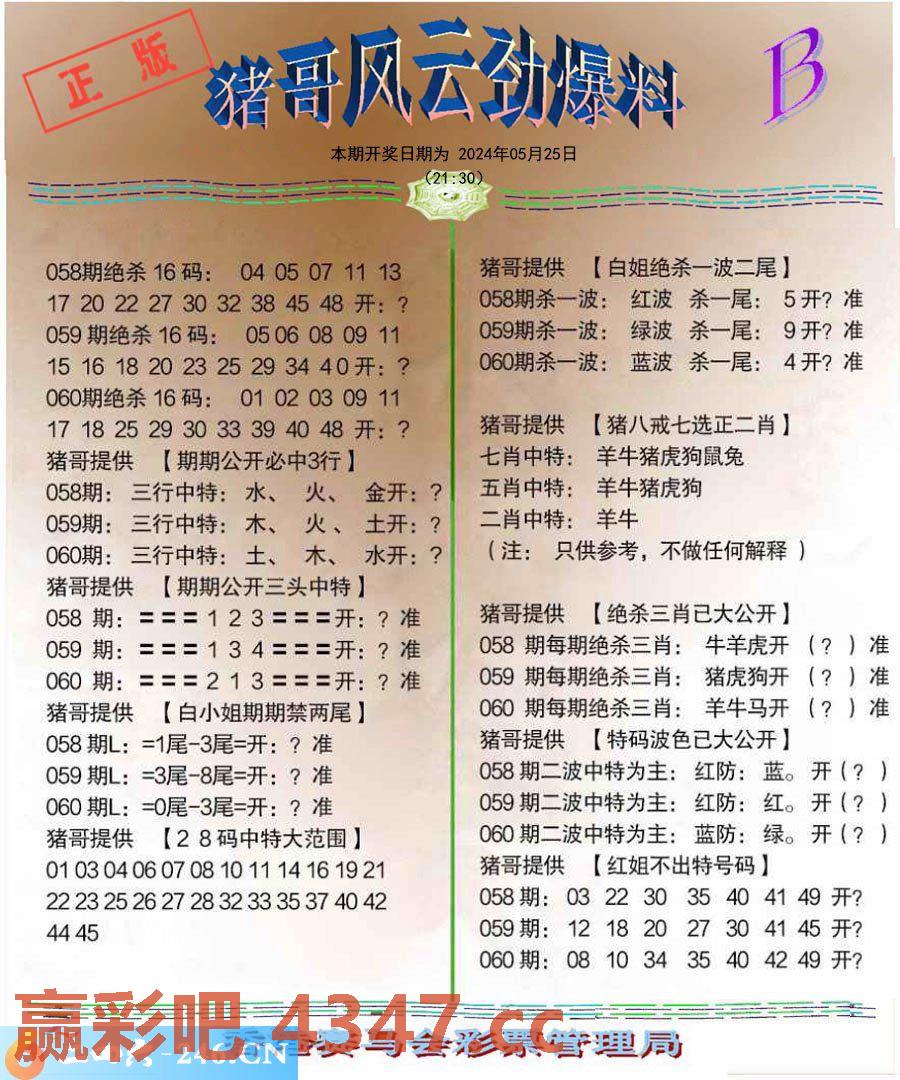 正版
猪哥风云劲爆料
B
本期开奖日期为 2024年05月25日
(21:30)
058期绝杀16码： 04 05 07 11 13
17 20 22 27 30 32 38 45 48 开：?
059期绝杀16码： 05 06 08 09 11
15 16 18 20 23 25 29 34 40 开：?
060期绝杀16码： 01 02 03 09 11
17 18 25 29 30 33 39 40 48 开：?
猪哥提供 【期期公开必中3行】
058期：三行中特：水、 火、 金开：?
059期：三行中特：木、 火、 土开：?
060期：三行中特：土、 木、 水开：?
猪哥提供 【期期公开三头中特】
058 期：===123===开：? 准
059 期：===134===开：? 准
060 期：===213===开：? 准
猪哥提供 【白小姐期期禁两尾】
058期L：=1尾-3尾=开：? 准
059期L：=3尾-8尾=开：? 准
060期L：=0尾-3尾=开：? 准
猪哥提供 【28码中特大范围】
01 03 04 06 07 08 10 11 14 16 19 21
22 23 25 26 27 28 32 33 35 37 40 42
44 45
猪哥提供 【白姐绝杀一波二尾】
058期杀一波： 红波 杀一尾： 5开? 准
059期杀一波： 绿波 杀一尾： 9开? 准
060期杀一波： 蓝波 杀一尾： 4开? 准
猪哥提供 【猪八戒七选正二肖】
七肖中特： 羊牛猪虎狗鼠兔
五肖中特： 羊牛猪虎狗
二肖中特： 羊牛
（注： 只供参考，不做任何解释）
猪哥提供 【绝杀三肖已大公开】
058 期每期绝杀三肖： 牛羊虎开 （?）准
059 期每期绝杀三肖： 猪虎狗开 （?）准
060 期每期绝杀三肖： 羊牛马开 （?）准
猪哥提供 【特码波色已大公开】
058期二波中特为主：红防：蓝。开(?)
059期二波中特为主：红防：红。开(?)
060期二波中特为主：蓝防：绿。开(?)
猪哥提供 【红姐不出特号码】
058期：03 22 30 35 40 41 49 开?
059期：12 18 20 27 30 41 45 开?
060期：08 10 34 35 40 42 49 开?
赢彩吧 4347.cc
马会彩票管理局
-246.CN